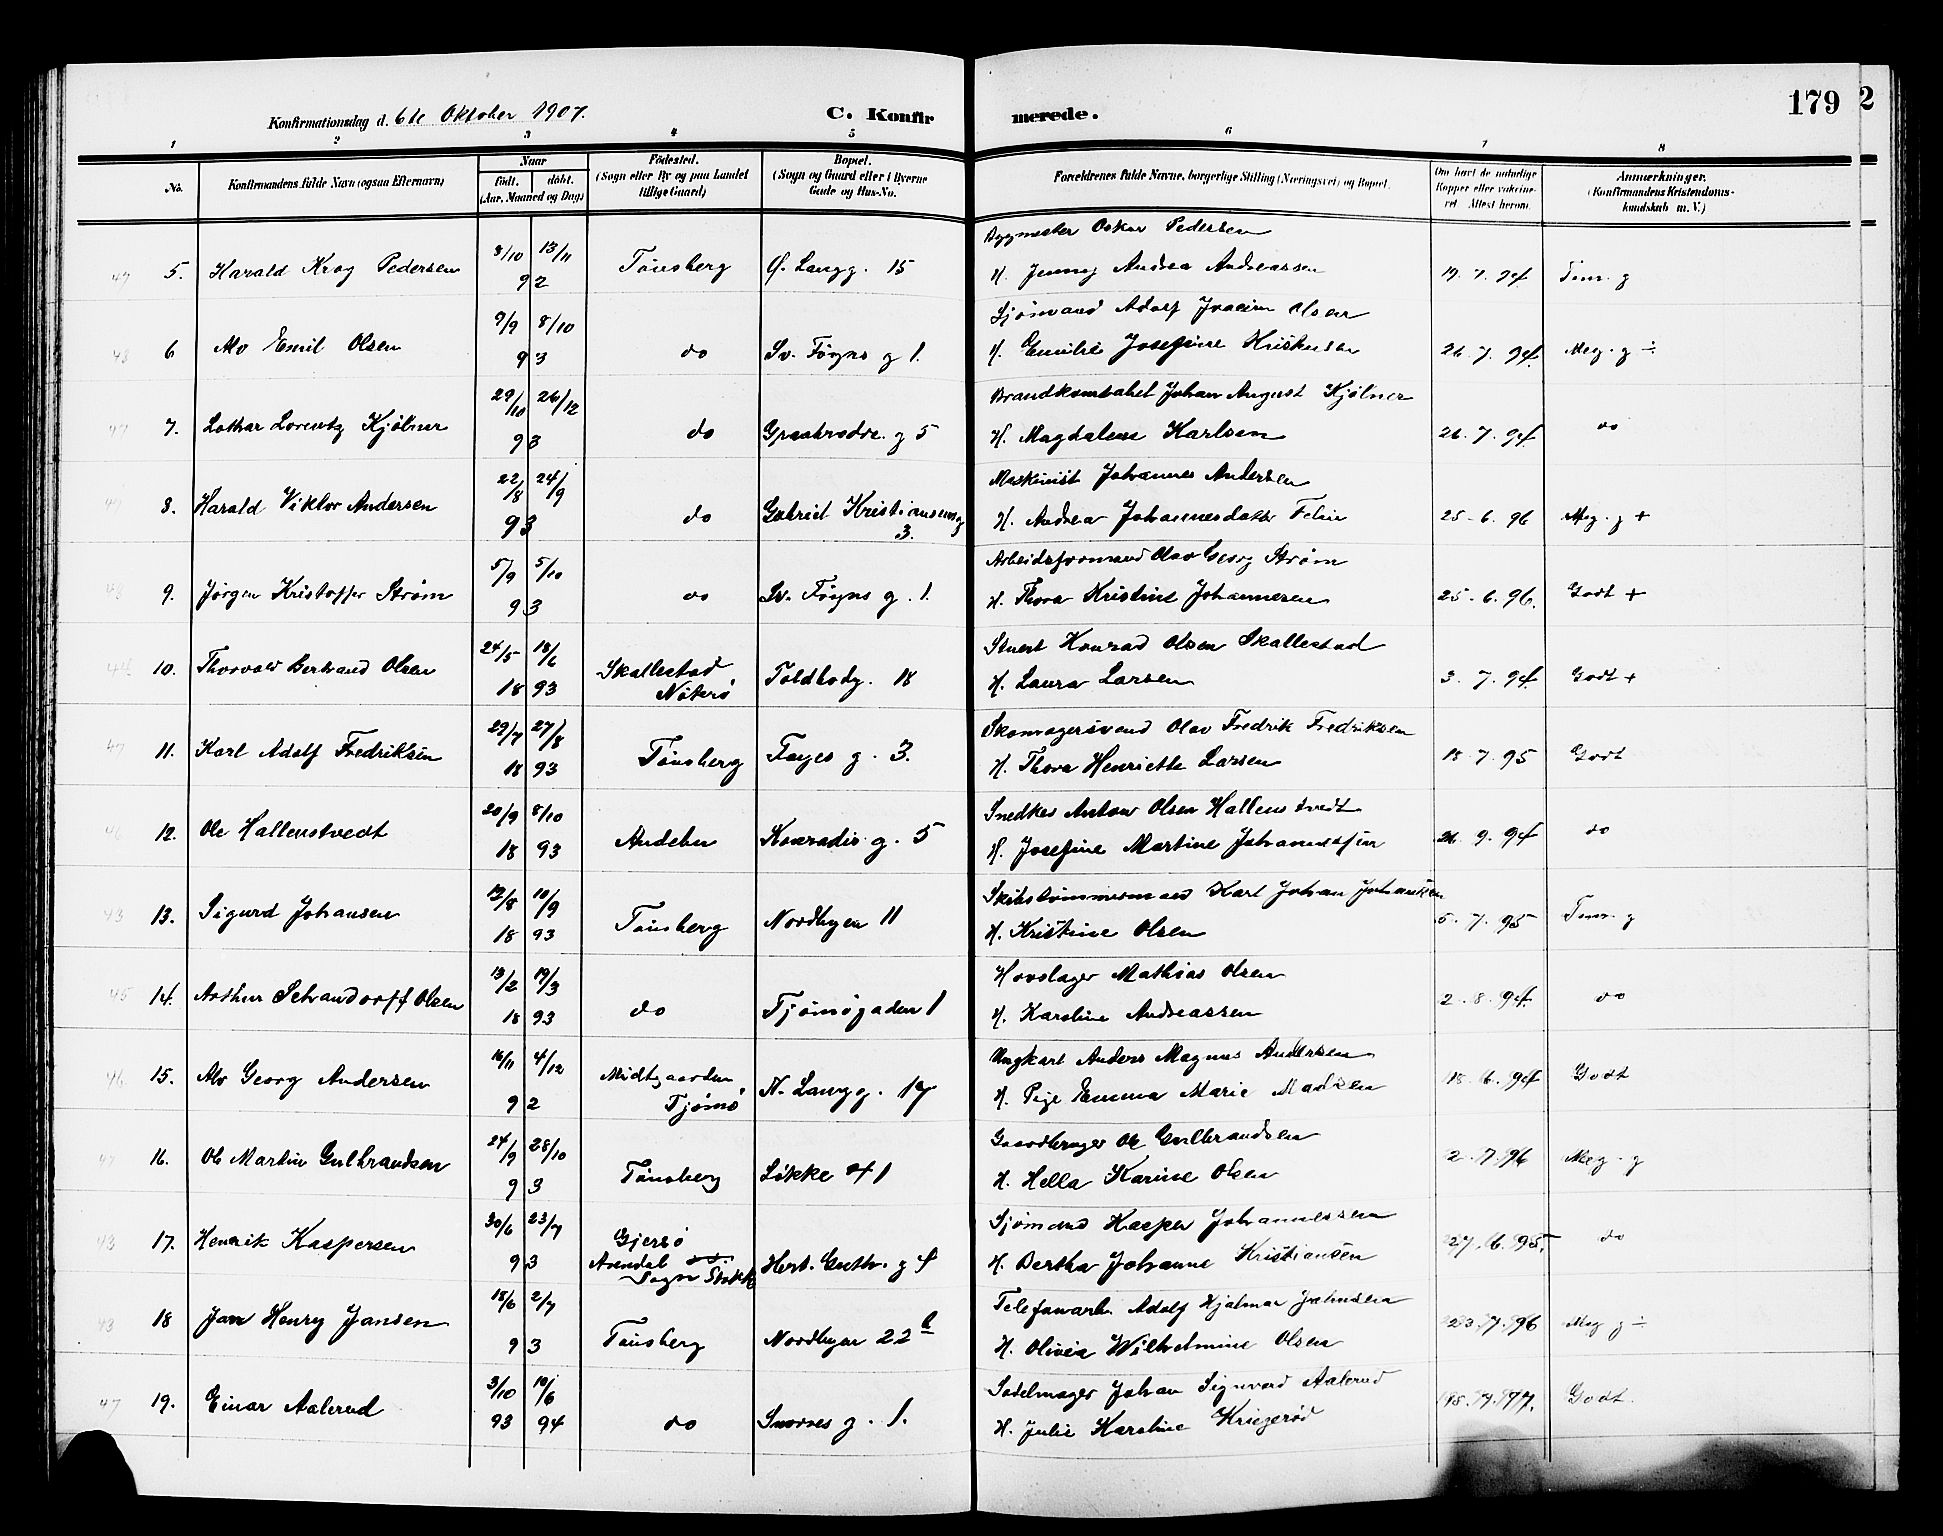 Konfirmationsdag d. 6te Oktober 1907.
C. Konfirmerede.
179
2
1 2 3 4 5 6 7 8
No.
Konfirmandens fulde Navn (ogsaa Efternavn)
Naar
födt. döbt.
(Aar, Maaned og Dag)
Födested.
(Sogn eller By og paa Landet tillige Gaard)
Bopæl.
(Sogn og Gaard eller i Byerne Gade og Hus-No.
Forældrenes fulde Navne, borgerlige Stilling (Næringsvei) og Bopæl.
Om havt de naturlige Kopper eller vaccineret. Attest herom.
Anmærkninger.
(Konfirmandens Kristendomskundskab m. V.)
5. Harald Krog Pedersen 8/10 13/11 92 Tönsberg Ø. Langg. 15
Bygmester Oskar Pedersen
H. Jenny Andrea Andreassen 19.7.94 Tmr. g
6 Alv Emil Olsen 9/9 8/10 93 do Sv. Føyns g 1.
Sjömand Adolf Joacim Olsen
H. Emilie Josefine Kristensen 26.7.94 Meg. g ÷
7. Lothar Lorentz Kjölner 29/10 26/12 93 do Graabrødre. g 5
Brandkonstabel Johan August Kjölner
H. Magdalene Karlsen 26.7.94 do
8. Harald Viktor Andersen 22/8 24/9 93 do Gabriel Kristiansensg 3.
Maskinist Johannes Andersen
H. Andrea Johannesdatter 25-6.96 Meg. g +
9. Jörgen Kristoffer Ström 5/9 5/10 93 do Sv. Føyns g. 1.
Arbeidsformand Olav Georg Ström
H. Thora Kristine Johannesen 25-6.96. Godt +
10. Thorvald Bertrand Olsen 24/5 18/6 18 93 Skallestad Nöterö Toldbodg. 18
Stuert Konrad Olsen Skallestad
H. Laura Larsen 3.7.94. Godt +
11. Karl Adolf Fredriksen 29/7 27/8 18 93 Tönsberg Farges g. 3.
Skomagersvend Olav Fredrik Fredriksen
H. Thora Henriette Larsen 18.7.95 Godt
12. Ole Hallenstvedt 20/9 8/10 18 93 Andebu Konradis g. 5
Snedker Anton Olsen Hallenstvedt
H. Josefine Martine 26.9.94 do
13. Sigurd Johansen 12/8 10/9 18 93 Tönsberg Nordbyen 11
Skibstömmermand Karl Johan Johansen
H. Kristine Olsen 5.7.95 Tmr. g
14. Arthur Schandorff Olsen 13/2 19/3 18 93 do Tjömögaden 1
Hovslager Mathias Olsen
H. Karoline Andreassen 2.8.94. do
15. Alv Georg Andersen 16/11 4/12 92 Midtgaarden, Tjömö N. Langg. 17
Ungkarl Anders Magnus Andersen
H. Pige Emma Marie Madsen 18.6.94 Godt
16. Ole Martin Gulbrandsen 24/9 28/10 93 Tönsberg Lökke 41
Gaardbruger Ole Gulbrandsen
H. Hella Karine Olsen 2.7.96 Meg. g
17. Henrik Kaspersen 30/6 23/7 93 Gjersö Arendal Sogn Stokke Hert. Guth. g 4
Sjömand Kasper Johannessen
H. Bertha Johanne Kristiansen 27.6.95. do
18 Jan Henry Jansen 18/6 2/7 93 Tönsberg Nordbyen 22 b
Telefonarb. Adolf Hjalmar Jahnsen
H. Olivia Wilhelmine Olsen 23.7.96 Meg g ÷
19. Einar Aalerud 3/10 10/6 93 94 do Snorres g. 1.
Sadelmager Johan Sigurd Aalerud
H. Julie Karoline Krugerød Godt.